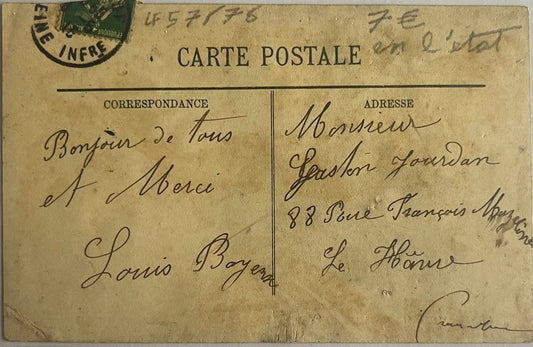 EINE INFRE
457/76
7€
en l'état
CARTE POSTALE
CORRESPONDANCE
Bonjour de tous
et Merci
Louis
ADRESSE
Monsieur
Gaston Jourdan
88 Rue François Mazeline
Le Hâvre